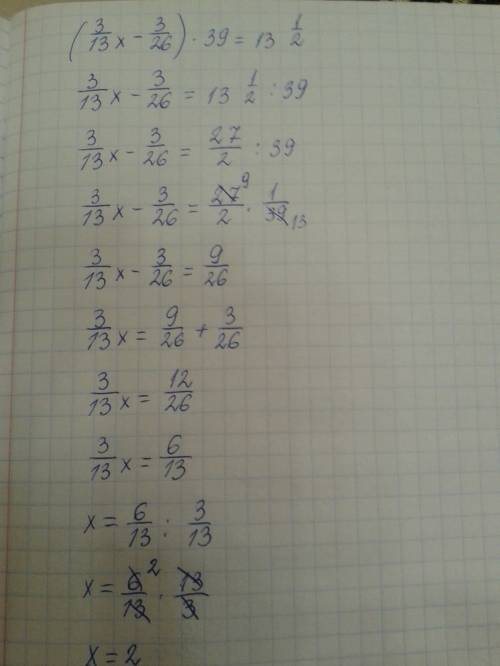 (3/13 x - 3/26) · 39 = 13 1/2
3/13 x - 3/26 = 13 1/2 : 39
3/13 x - 3/26 = 27/2 : 39
3/13 x - 3/26 = 27 9/2 · 1/39 13
3/13 x - 3/26 = 9/26
3/13 x = 9/26 + 3/26
3/13 x = 12/26
3/13 x = 6/13
x = 6/13 : 3/13
x = 6 2/13 · 13/3
x = 2